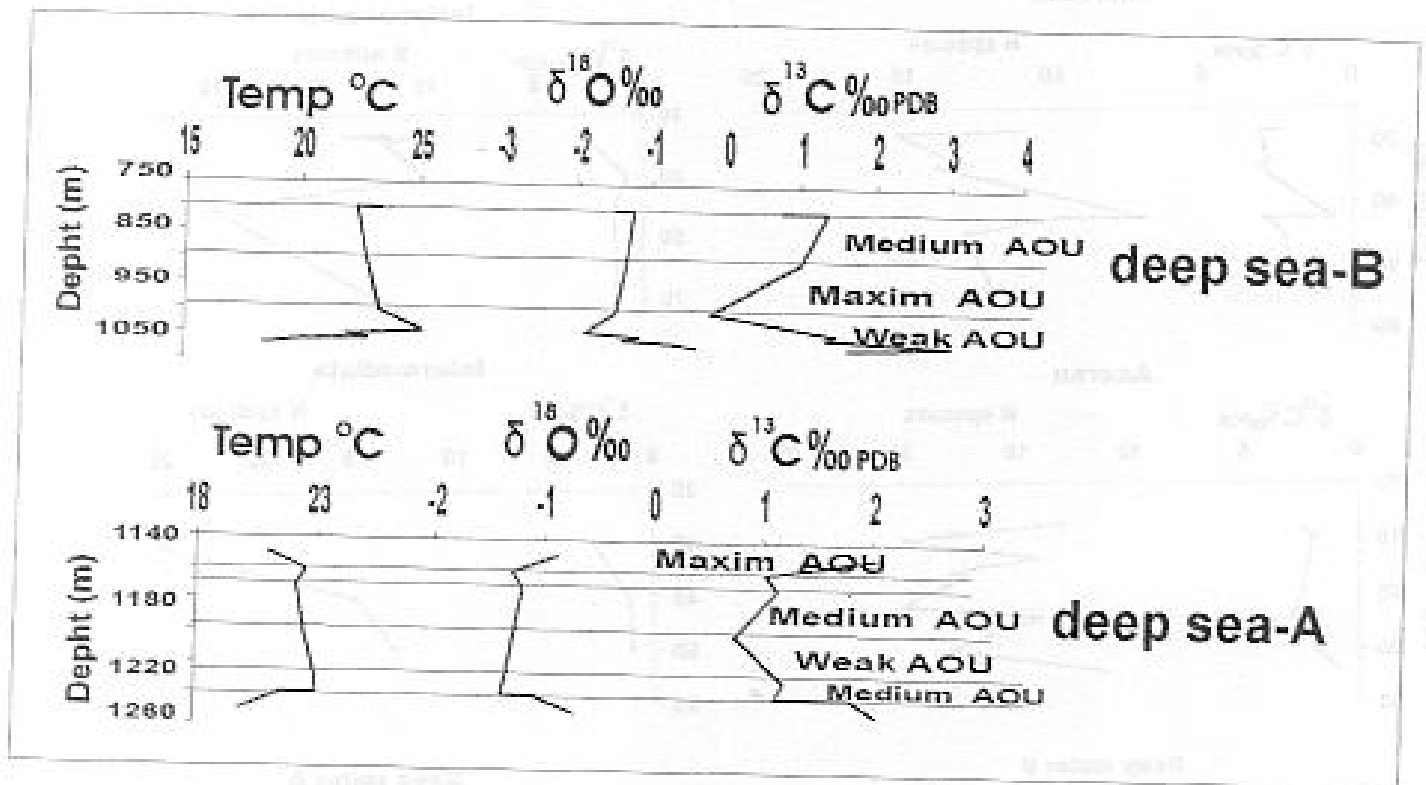 Temp °C δ¹⁸O‰ δ¹³C‰ PDB
15 20 25 -3 -2 -1 0 1 2 3 4
Depht (m)
750
850
950
1050
Medium AOU
Maxim AOU
Weak AOU
deep sea-B
Temp °C δ¹⁸O‰ δ¹³C‰ PDB
18 23 -2 -1 0 1 2 3
Depht (m)
1140
1180
1220
1260
Maxim AOU
Medium AOU
Weak AOU
Medium AOU
deep sea-A